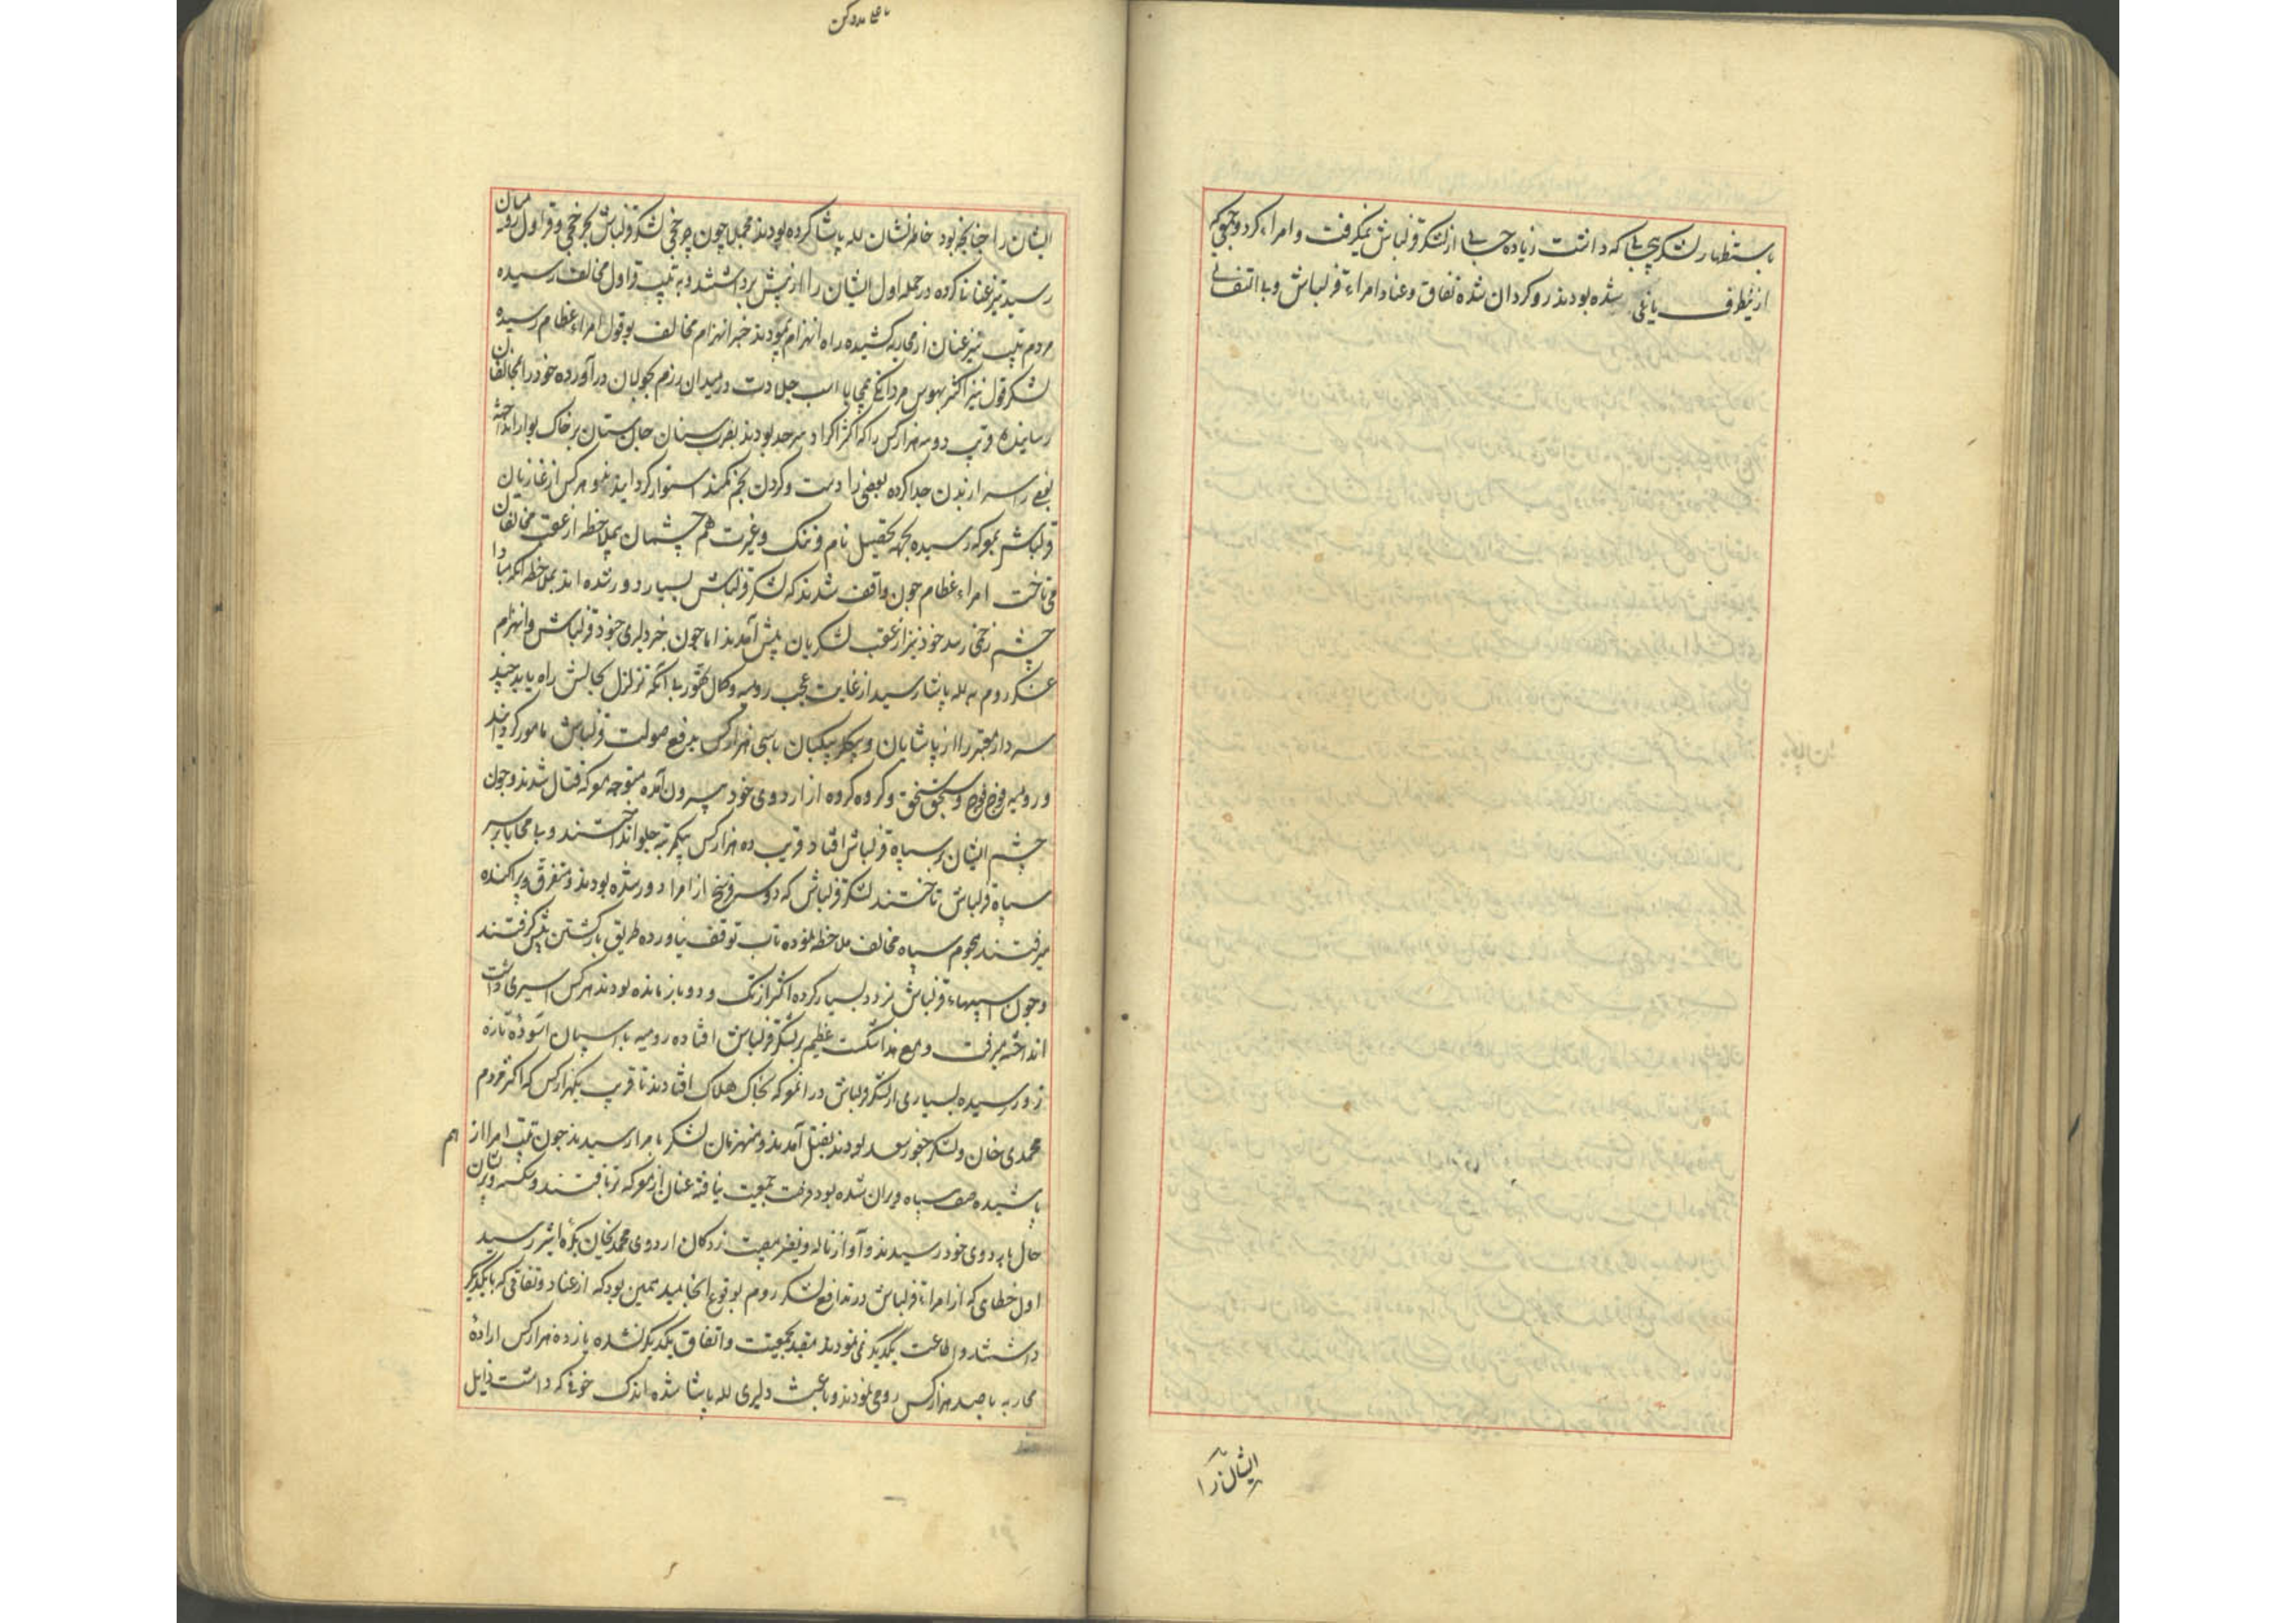 باستظهار لشکر بیحسابی که داشت زیاده حسابی از لشکر قزلباش نمیگرفت و امراء کرد و جمعی که
از ینطرف یاغی شده بودند رو کردان شده نفاق و عناد امراء قزلباش و بی اتفاقی
ایشانرا
ایشان را چنانچه بود خاطرنشان لله پاشا کرده بودند مجملا چون چرخچی لشکر قزلباش بچرخچی و قراول رومیان
رسید تیز عنانان کرده در حمله اول ایشان را از پیش برداشتند و به تیپ قراول مخالف رسیده
مردم تیپ نیز عنان از محاربه کشیده راه انهزام پیمودند خبر انهزام مخالف بقول امراء عظام رسیده
لشکر قول نیز اکثر بهوس مردانگی بی پا اسب جلادت در میدان رزم بجولان در آورده خود را بمخالفان
رسانیده قریب دو سه هزار کس را که اکثر اکراد سرحد بودند بضرب سنان جان ستان بر خاک بوار انداخته
بعضی را سر از بدن جدا کرده بعضی را دست و کردن بخم کمند استوار کردانیدند و هر کس از غازیان
قزلباش بمعرکه رسیده بجهه تحصیل نام و ننک و غیرت هم چشمان بیملاحظه از عقب مخالفان
می تاخت امراء عظام چون واقف شدند که لشکر قزلباش بسیار دور شده اند بملاحظه آنکه مبادا
چشم زخمی رسد خود نیز از عقب لشکریان پیش آمدند اما چون خبر دلیری جنود قزلباش و انهزام
عسکر روم به لله پاشا رسید از غایت عجب رومیه و کمال تهور بی آنکه تزلزل بحالش راه یابد چند
سردار معتبر را از پاشایان و بیکلربیکیان با سی هزار کس بدفع صولت قزلباش مامور کردانید
و رومیه فوج فوج و سنجق سنجق و کروه کروه از اردوی خود بیرون آمده متوجه معرکه قتال شدند و چون
چشم ایشان بر سپاه قزلباش افتاد قریب ده هزار کس بیکمرتبه جلو انداختند و بی محابا بر سر
سپاه قزلباش تاختند لشکر قزلباش که دو سه فرسخ از امرا دور شده بودند و متفرق و پراکنده
میرفتند هجوم سپاه مخالف ملاحظه نموده تاب توقف نیاورده طریق بازکشتن پیش کرفتند
و چون اسبهاء قزلباش تردد بسیار کرده اکثر از تک و دو باز مانده بودند هر کس اسیری داشت
انداخته میرفت و مع هذا شکست عظیم بر لشکر قزلباش افتاده رومیه با اسپان آسوده تازه
زور رسیده بسیاری از لشکر قزلباش در آنمعرکه بخاک هلاک افتادند تا قریب یکهزار کس که اکثر مردم
محمدی خان و لشکر چخور سعد بودند بقتل آمدند و منهزمان لشکر بامرا رسیدند چون تیپ امرا از هم
پاشیده صف سپاه ویران شده بود فرصت جمعیت نیافته عنان از معرکه برتافتند و شکسته و پریشان
حال باردوی خود رسیدند و آواز ناله و نفیر مصیبت زدکان اردوی محمدیخان بکره اثیر رسید
اول خطایی که از امراء قزلباش در تدافع لشکر روم بوقوع انجامید همین بود که از عناد و نفاقی که با یکدیکر
داشتند و اطاعت یکدیکر نمی نمودند مقید بجمعیت و اتفاق یکدیکر نشده یازده هزار کس اراده
محاربه با صد هزار کس رومی نمودند و باعث دلیری لله پاشا شده اندک خوفی که داشت زایل